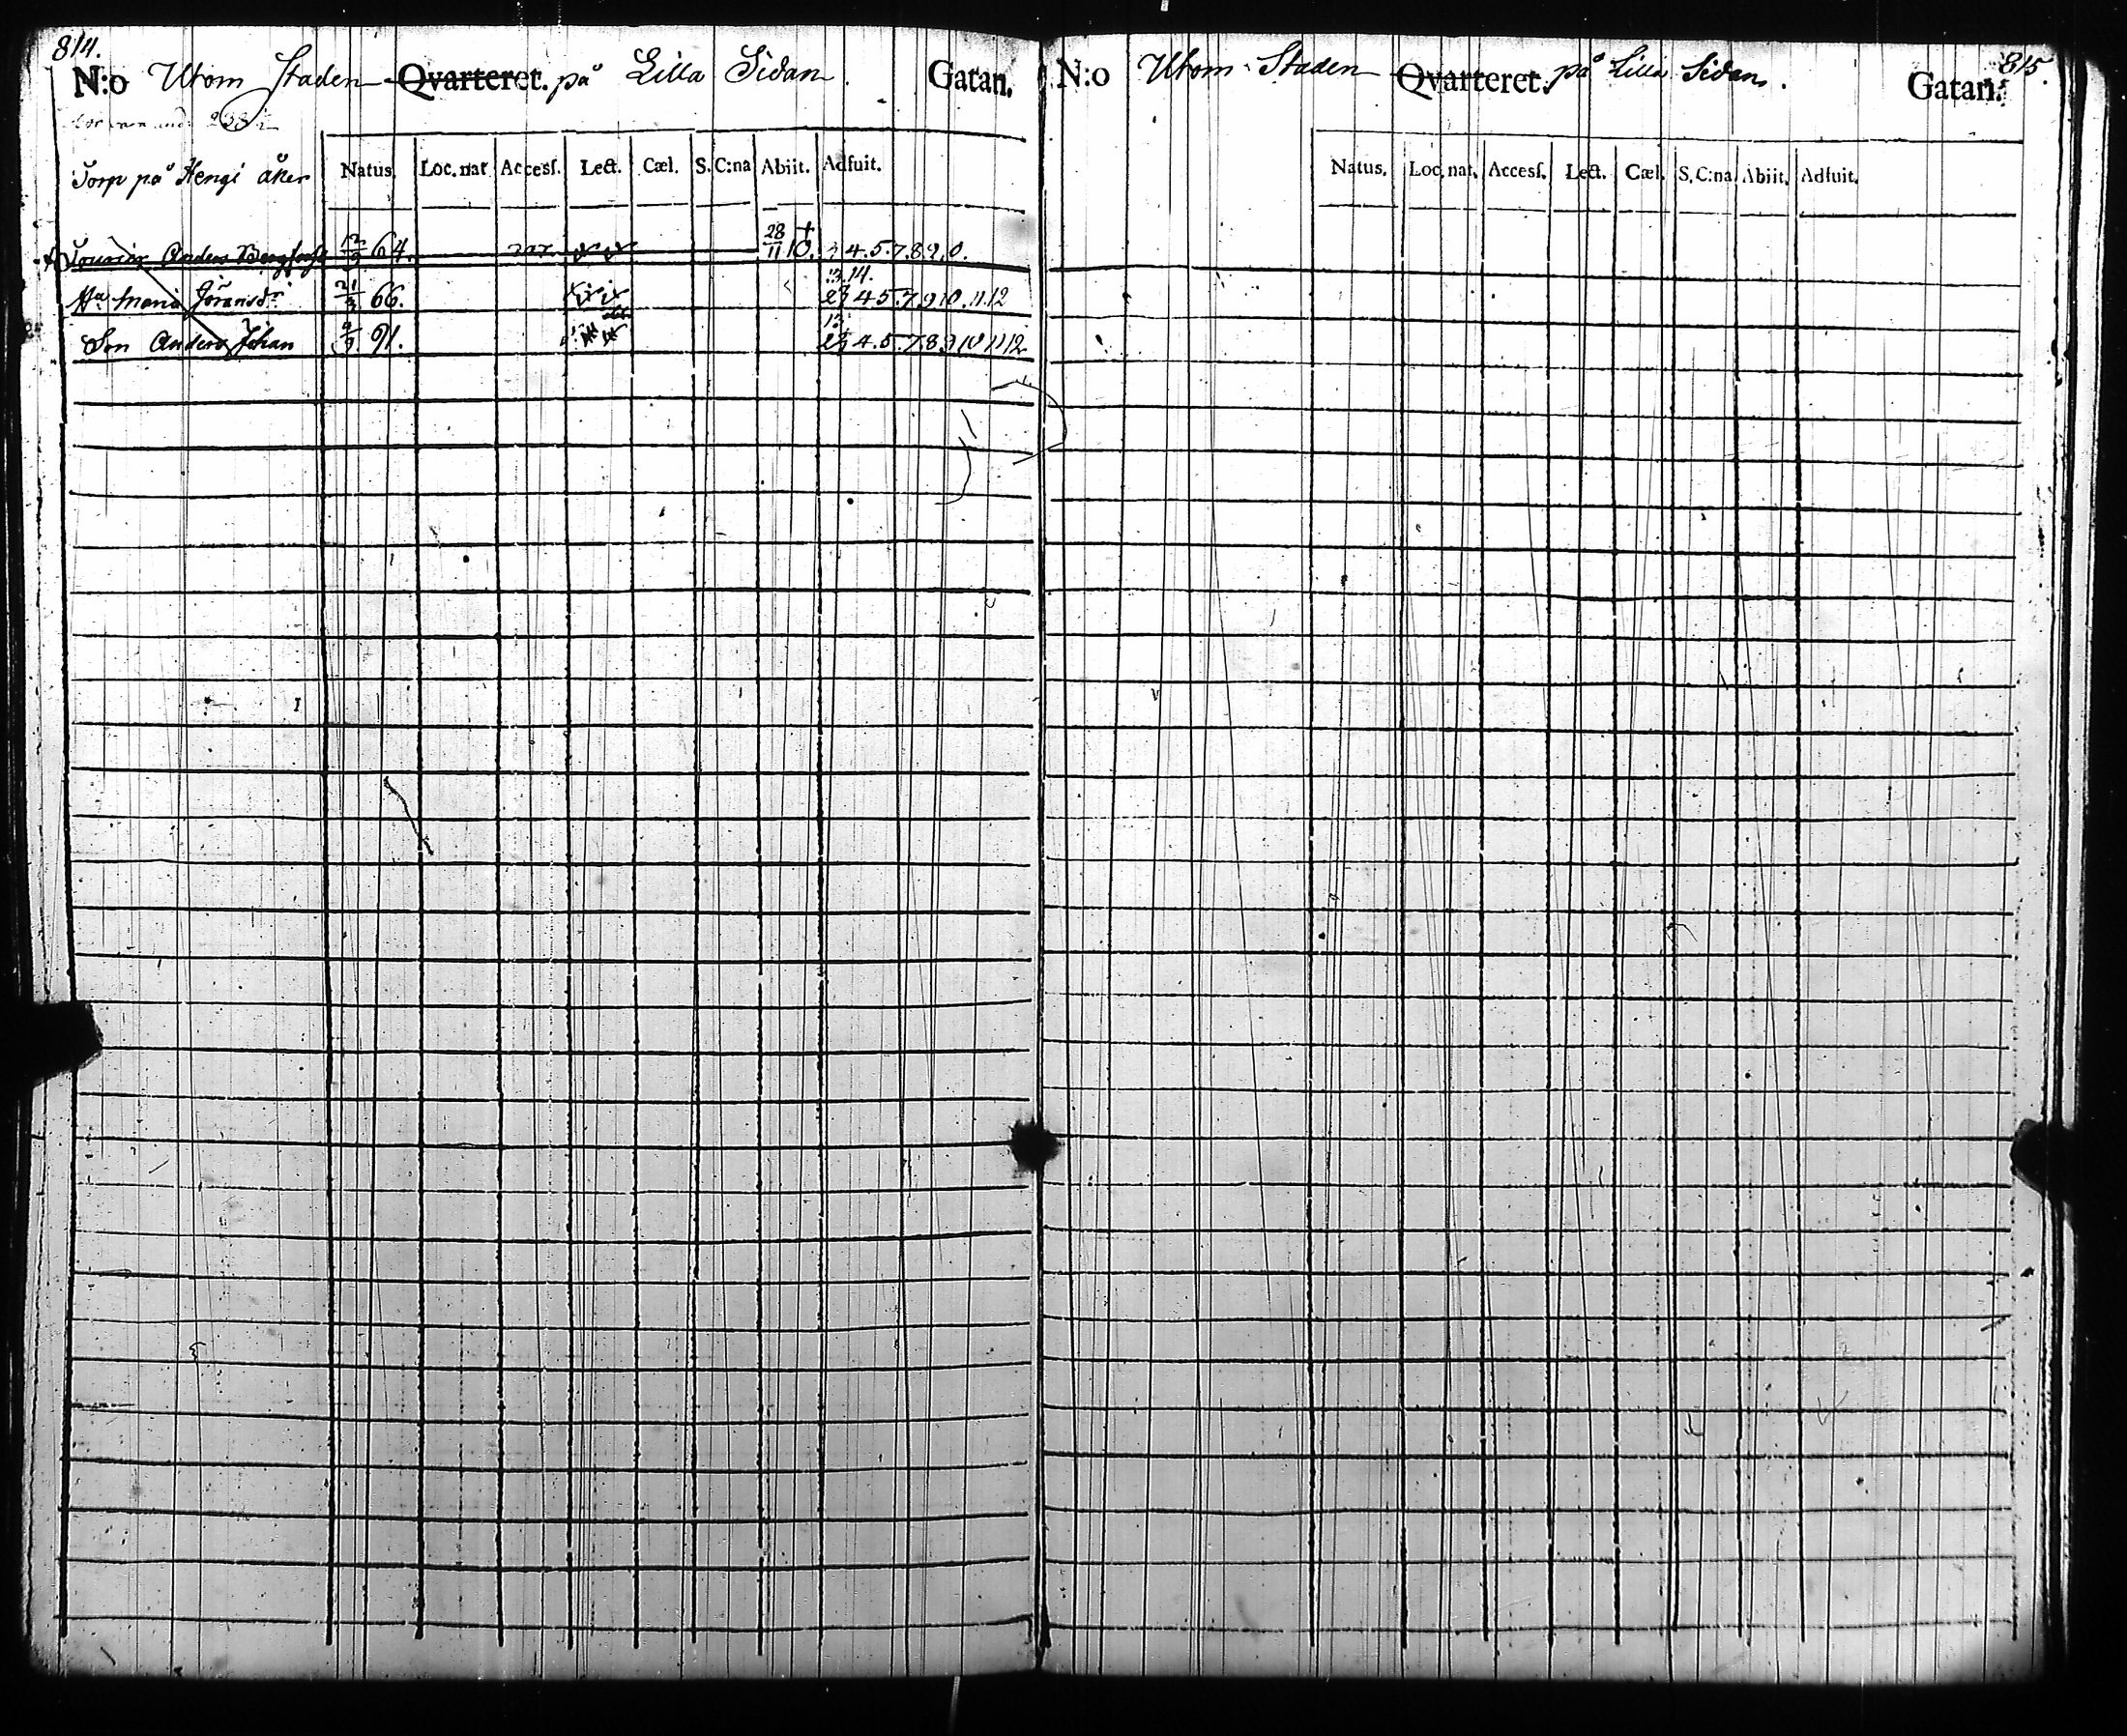 814.
N:o Utom Staden Qvarteret. på Lilla Sidan. Gatan.
Torp på Hengi åker
Natus. Loc. nat. Accesſ. Lect. Cæl. S. C:na Abiit. Adfuit.
Anders 12/9 64. 28/11 10. † 4.5.7.8.9.0.
13.14.
Maria Göransdr 66. 4 5.7.9 10.11.12
13
Son Anders Johan 91. 4.5.7.8.9 10 11 12
N:o Utom Staden Qvarteret. på Lilla Sidan. Gatan.
815.
Natus. Loc. nat. Accesſ. Lect. Cæl. S. C:na Abiit. Adfuit.